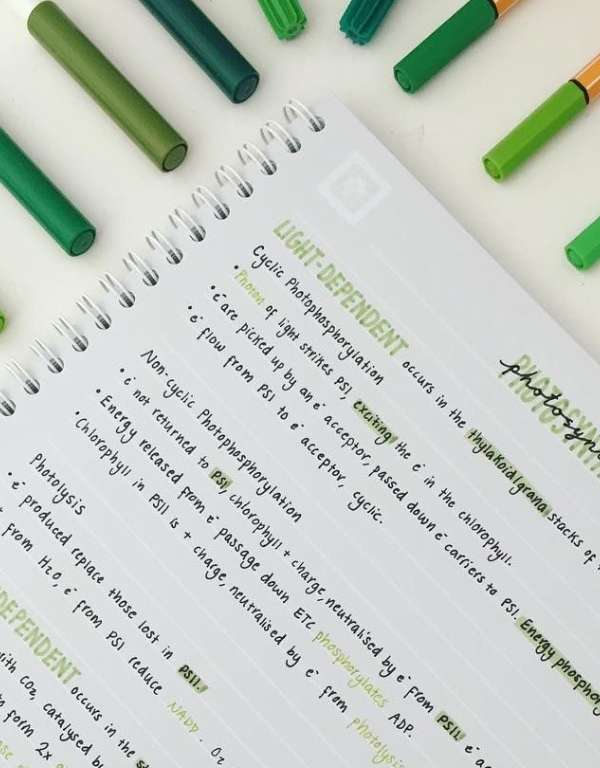 LIGHT-DEPENDENT occurs in the thylakoid/grana stacks of
Cyclic Photophosphorylation
• Photon of light strikes PSI, exciting the e⁻ in the chlorophyll.
• e⁻ are picked up by an e⁻ acceptor, passed down e⁻ carriers to PSI. Energy phosphory
• e⁻ flow from PSI to e⁻ acceptor, cyclic.
Non-cyclic Photophosphorylation
• e⁻ not returned to PSI, chlorophyll + charge, neutralised by e⁻ from PSII. e⁻
• Energy released from e⁻ passage down ETC phosphorylates ADP.
• Chlorophyll in PSII is + charge, neutralised by e⁻ from photolysis
Photolysis
• e⁻ produced replace those lost in PSII.
from H₂O, e⁻ from PSI reduce NADP. O₂
DEPENDENT occurs in the
with CO₂, catalysed by
to form 2x